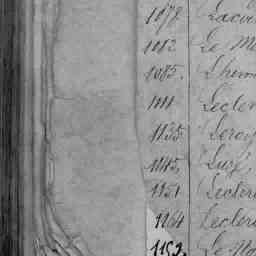 1078 Lavi
1082 Le Me
1085. Lherm
1111 Lecler
1135 Leroy
1145. Luré,
1151 Lecler
1164 Lecler
1192. Le Ma